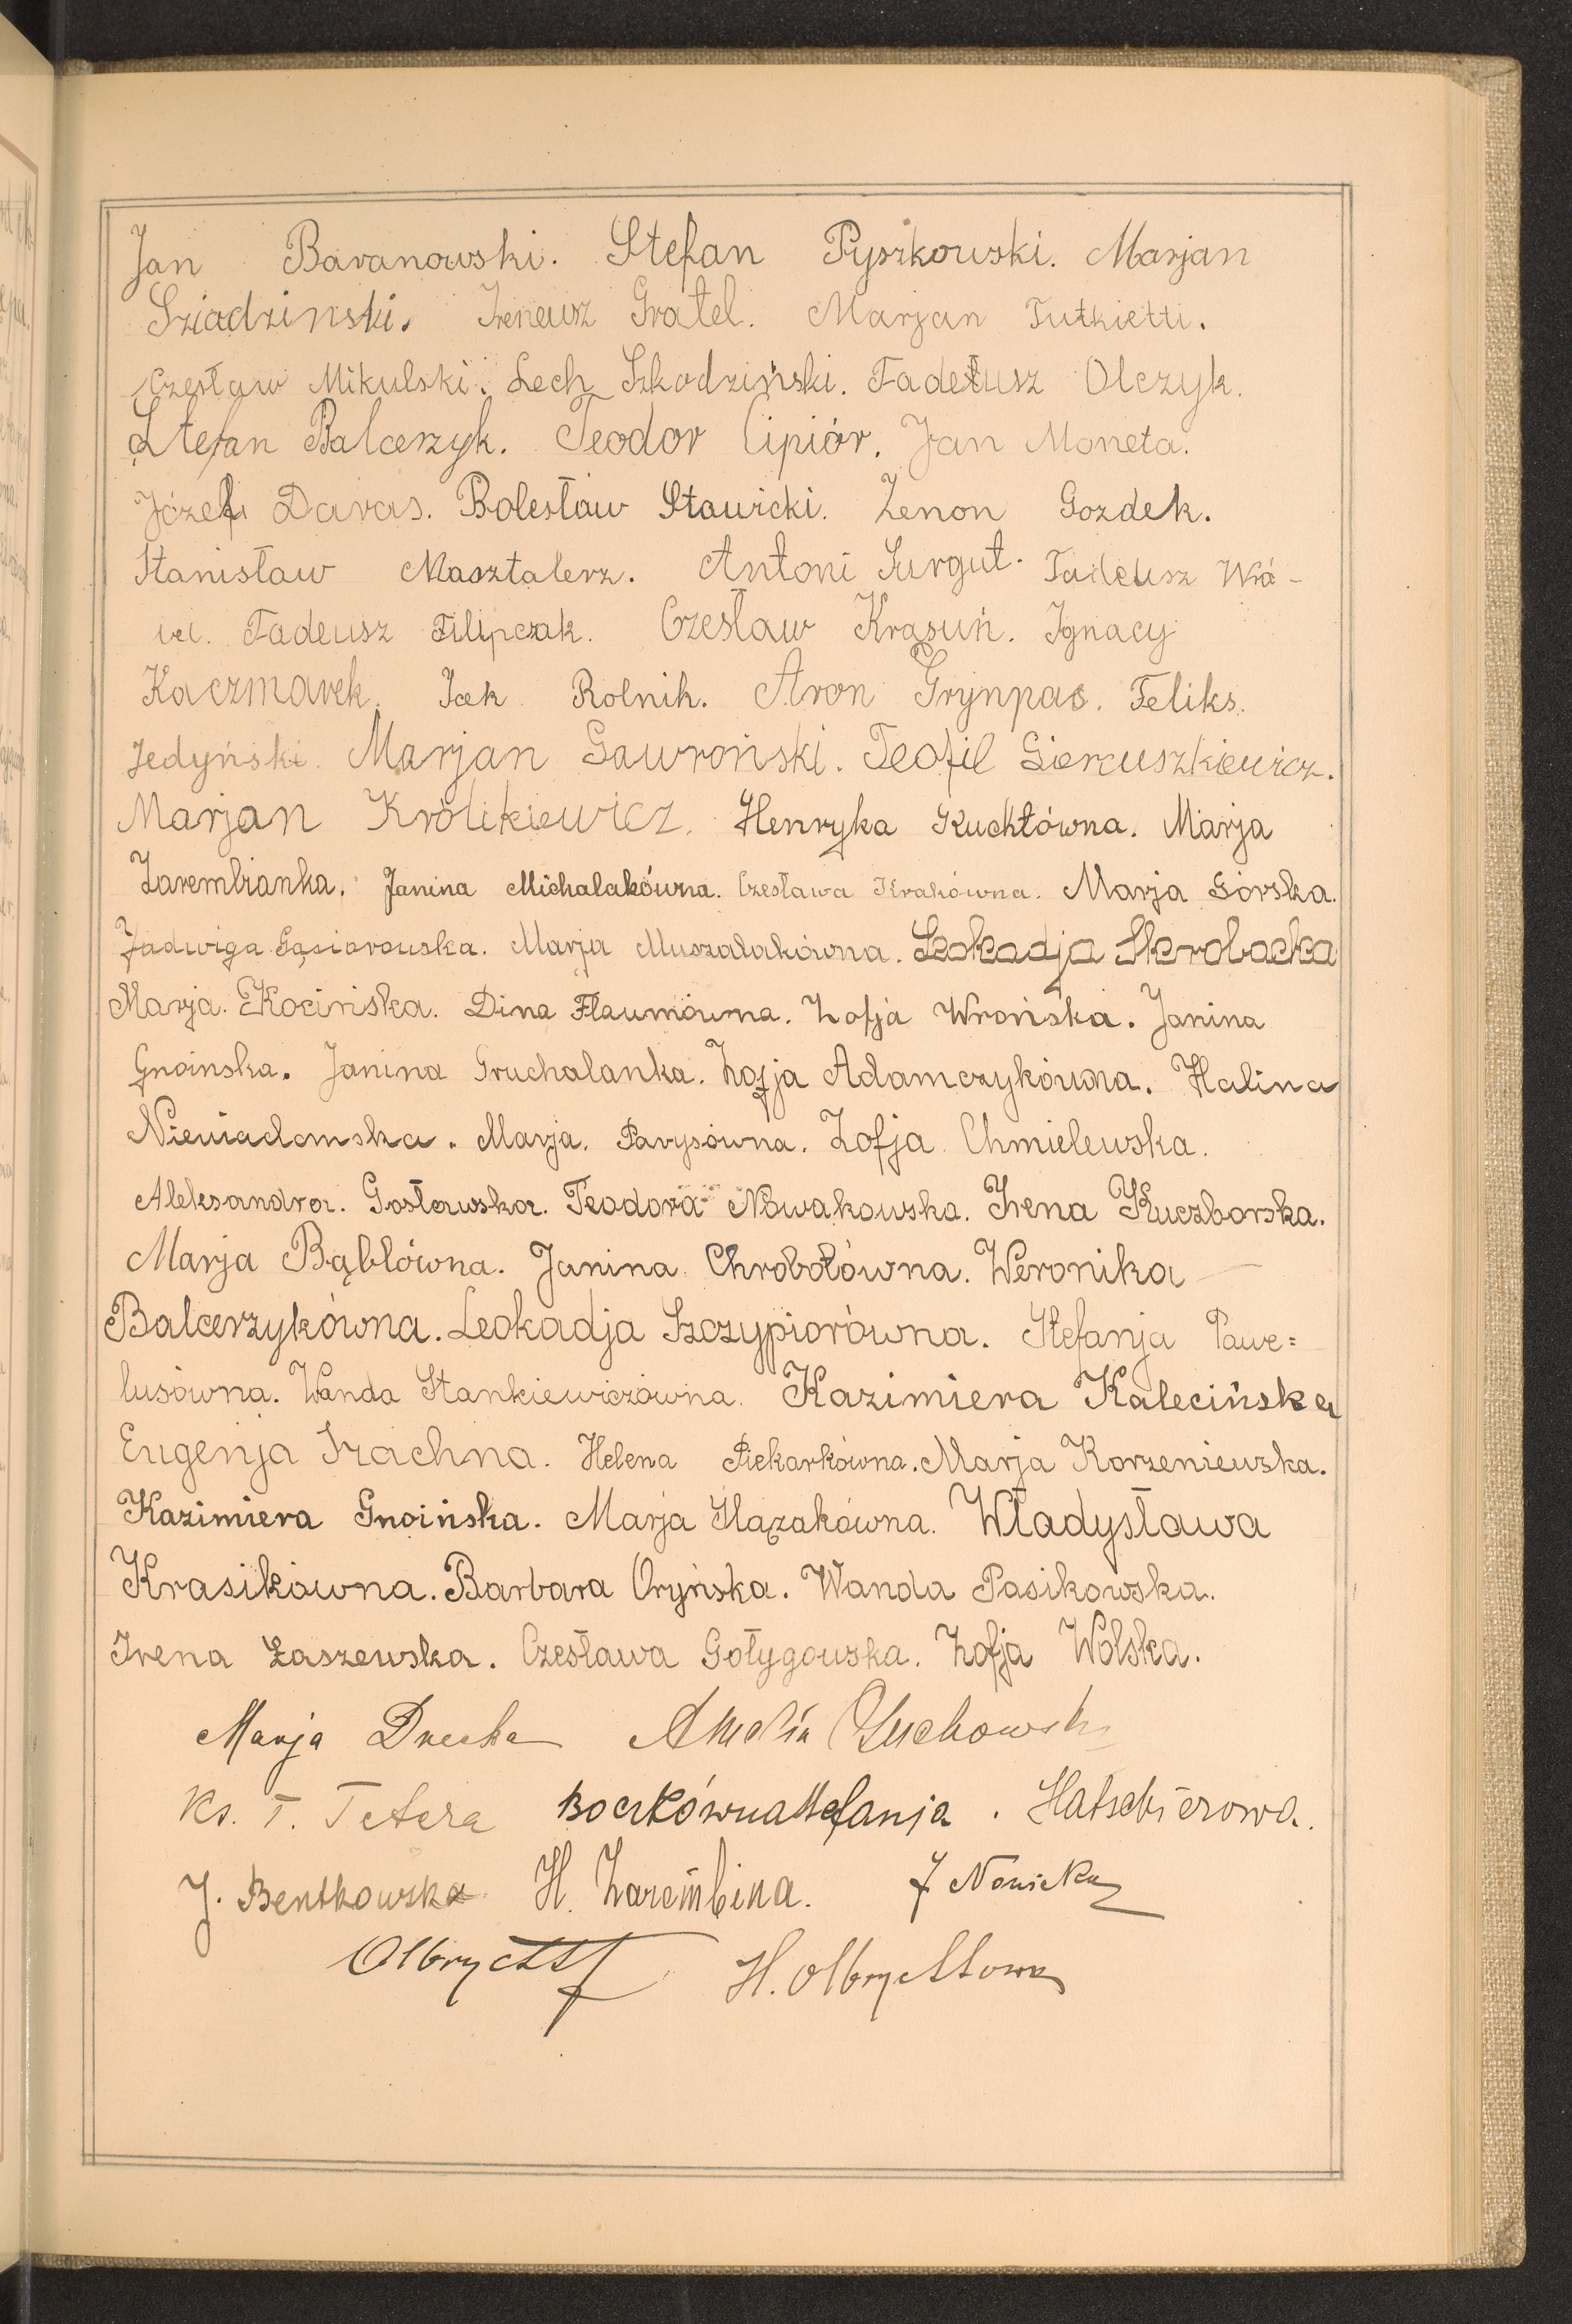 Jan Baranowski. Stefan Pyszkowski. Marjan
Sziadzinski. Ireneusz Gratel. Marjan Tutkietti.
Czesław Mikulski. Lech Szkodziński. Tadeusz Olczyk.
Stefan Balcerzyk. Teodor Cipiór. Jan Moneta.
Józef Daras. Bolesław Stawicki. Zenon Gozdek.
Stanisław Masztalerz. Antoni Surgut. Tadeusz
Tadeusz Filipczak. Czesław Krasuń. Ignacy
Kaczmarek. Icek Rolnik. Aron Grynpas. Feliks
Jedyński. Marjan Gawroński. Teofil Giercuszkiewicz.
Marjan Królikiewicz. Henryka Kuchtówna. Marja
Zarembianka. Janina Michalakówna. Czesława Krakówna. Marja Górska.
Jadwiga Gąsiorowska. Marja Muszalakówna. Leokadja Skrobacka
Marja. Kocińska. Dina Flaumówna. Zofja Wrońska. Janina
Gnoinska. Janina Gruchalanka. Zofja Adamczykówna. Halina
Niewiadomska. Marja. Parysówna. Zofja Chmielewska.
Aleksandra. Gosławska. Teodora Nowakowska. Irena Kuczborska.
Marja Bąblówna. Janina Chrobotówna. Weronika
Balcerzykówna. Leokadja Szczypiorówna. Stefanja Pawe=
lusówna. Wanda Stankiewiczówna. Kazimiera Kalecińska
Eugenja Trachna. Helena Piekarkówna. Marja Korzeniewska.
Kazimiera Gnoińska. Marja Ślązakówna. Władysława
Krasikówna. Barbara Oryńska. Wanda Pasikowska.
Irena Łaszewska. Czesława Gołygowska. Zofja Wolska.
Marja Amelia
Ks. T. Tetera Boczkówna Stefanja. Hatschierowa.
J. Bentkowska H. Zarembina. J Nowicka
Olbrycht H. Olbrychtowa